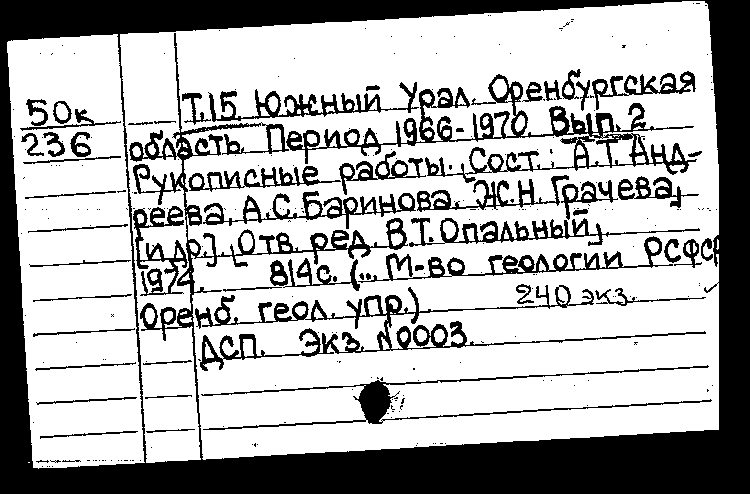 50к
236
Т.15. Южный Урал. Оренбургская
область. Период 1966-1970. Вып. 2.
Рукописные работы. Сост.: А.Т. Анд-
реева, А.С. Баринова, Ж.Н. Грачева
[и др.]. Отв. ред. В.Т. Опальный.
1974. 814с. (... М-во геологии РСФСР
Оренб. геол. упр.) 240 экз.
ДСП. Экз. №0003.